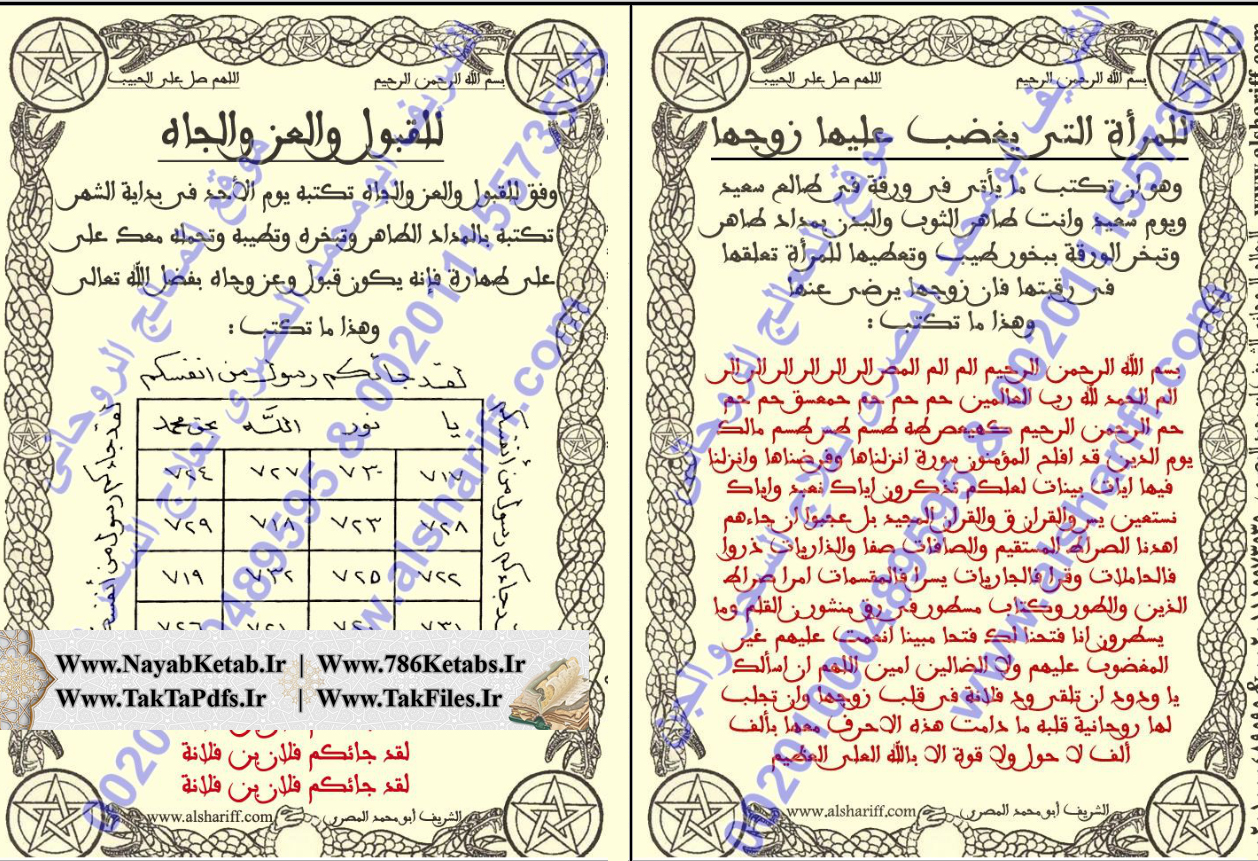 بسم الله الرحمن الرحيم
اللهم صل على الحبيب
للمرأة التى يغضب عليها زوجها
وهو ان تكتب ما يأتى فى ورقة فى طالع سعيد
ويوم سعيد وانت طاهر الثوب والبدن بمداد طاهر
وتبخر الورقة ببخور طيب وتعطيها للمرأة تعلقها
فى رقبتها فان زوجها يرضى عنها
وهذا ما تكتب :
بسم الله الرحمن الرحيم الم الم المص الر الر الر الر الر الر
الم الحمد لله رب العالمين حم حم حم حمعسق حم حم
حم الرحمن الرحيم كهيعص طه طسم طس طسم مالك
يوم الدين قد افلح المؤمنون سورة انزلناها وفرضناها وانزلنا
فيها ايات بينات لعلكم تذكرون اياك نعبد واياك
نستعين يس والقران ق والقران المجيد بل عجبوا ان جاءهم
اهدنا الصراط المستقيم والصافات صفا والذاريات ذروا
فالحاملات وقرا فالجاريات يسرا فالمقسمات امرا صراط
الذين والطور وكتاب مسطور فى رق منشور ن القلم وما
يسطرون انا فتحنا لك فتحا مبينا انعمت عليهم غير
المغضوب عليهم ولا الضالين امين اللهم ان اسألك
يا ودود ان تلقى ود فلانة فى قلب زوجها وان تجلب
لها روحانية قلبه ما دامت هذه الاحرف معها بألف
ألف لا حول ولا قوة الا بالله العلى العظيم
الشريف أبو محمد المصرى
www.alshariff.com
بسم الله الرحمن الرحيم
اللهم صل على الحبيب
للقبول والعز والجاه
وفق للقبول والعز والجاه تكتبه يوم الأحد فى بداية الشهر
تكتبه بالمداد الطاهر وتبخره وتطيبه وتحمله معك على
على طهارة فإنه يكون قبول وعز وجاه بفضل الله تعالى
وهذا ما تكتب :
لقد جائكم رسول من انفسكم
يا نور الله بحق محمد
٧١٧ ٧٣٠ ٧٢٧ ٧٢٤
٧٢٨ ٧٢٣ ٧١٨ ٧٢٩
٧٢٢ ٧٢٥ ٧٣٢ ٧١٩
لقد جاءكم رسول من أنفسكم
Www.NayabKetab.Ir | Www.786Ketabs.Ir
Www.TakTaPdfs.Ir | Www.TakFiles.Ir
لقد جائكم فلان بن فلانة
لقد جائكم فلان بن فلانة
الشريف أبو محمد المصرى
www.alshariff.com